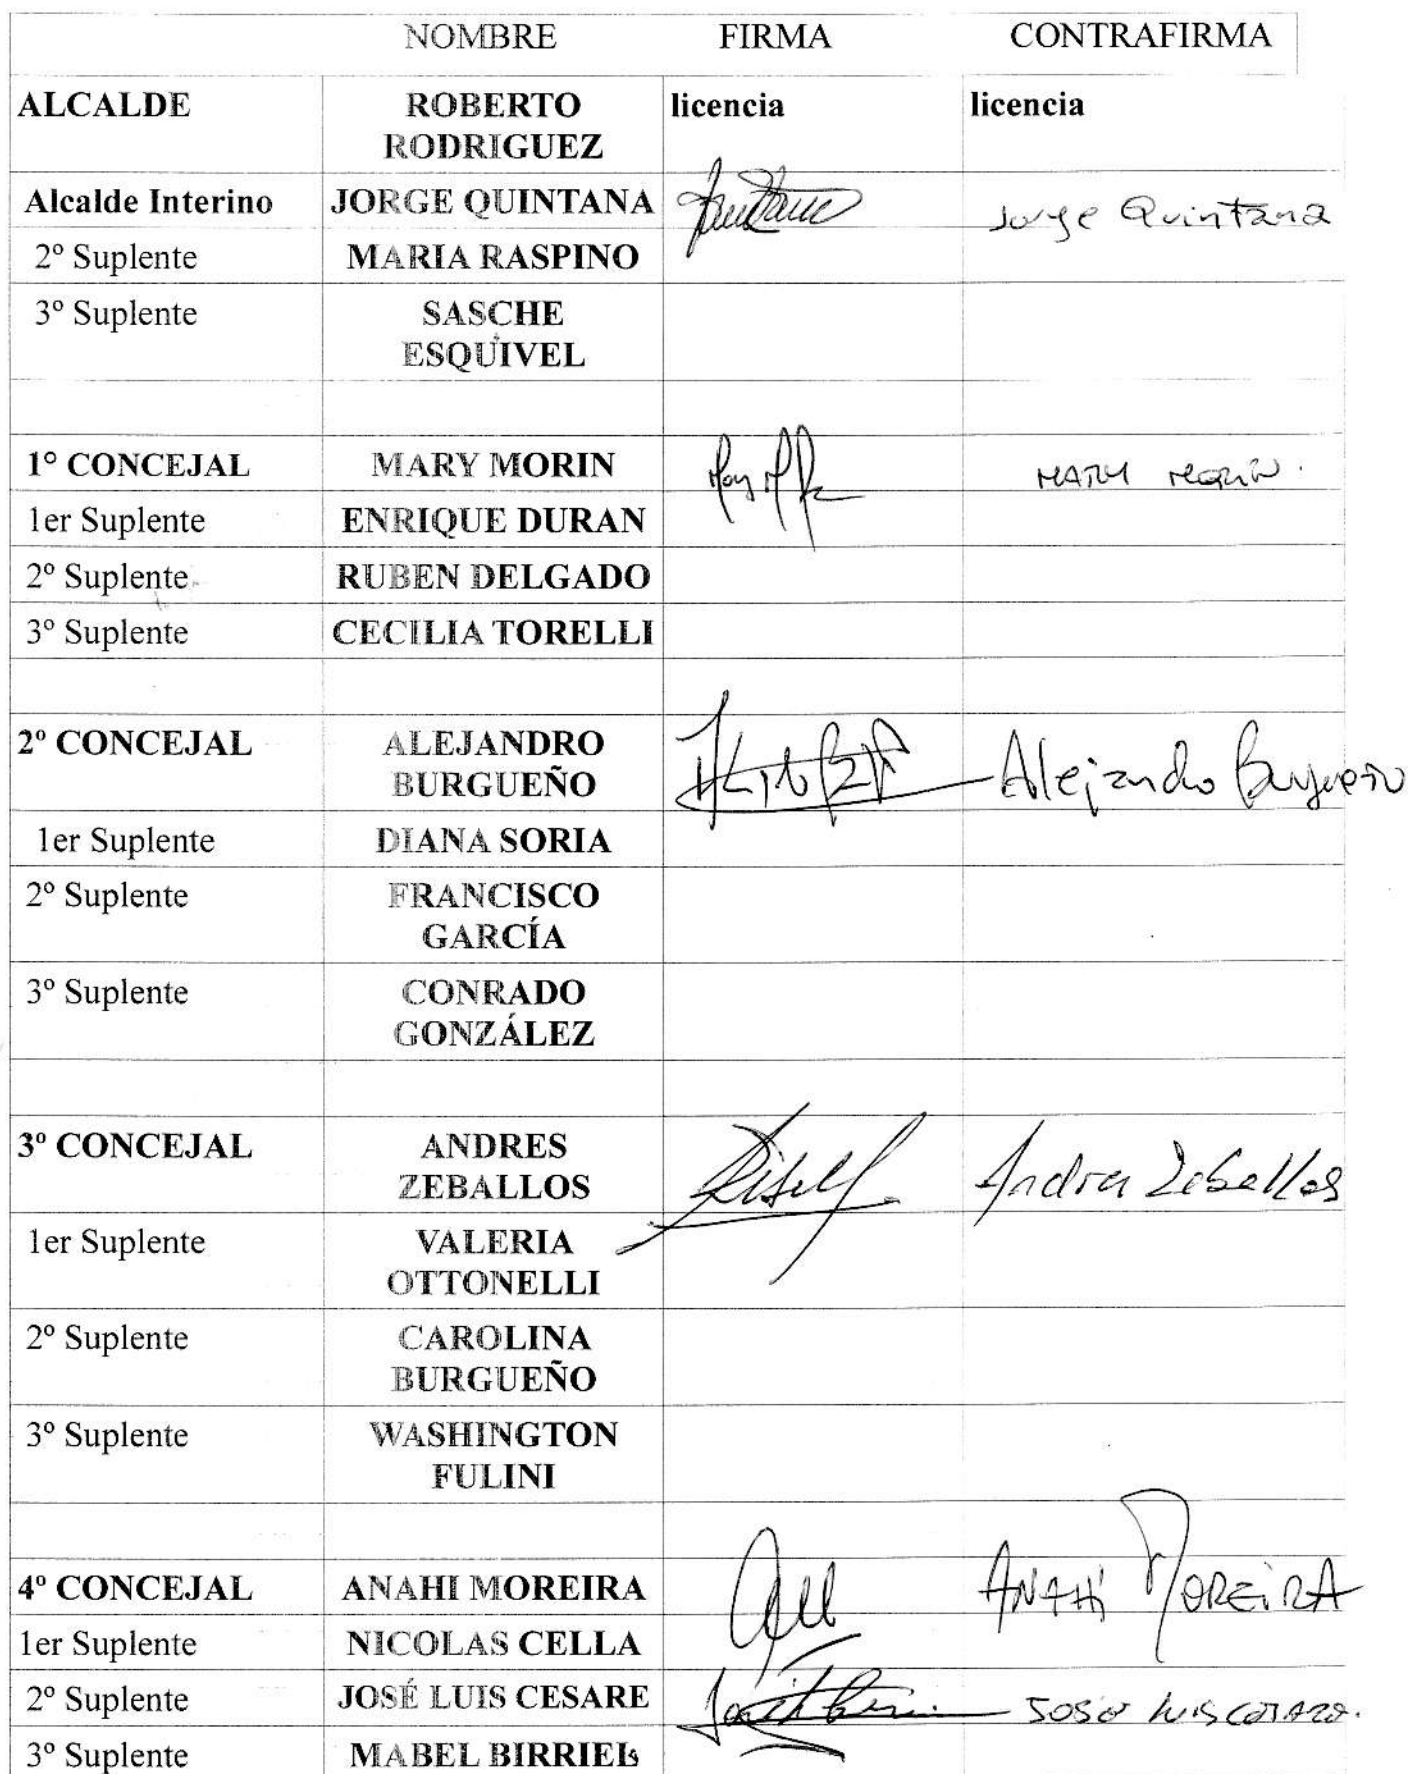 NOMBRE FIRMA CONTRAFIRMA
ALCALDE ROBERTO RODRIGUEZ licencia licencia
Alcalde Interino JORGE QUINTANA Jorge Quintana
2º Suplente MARIA RASPINO
3º Suplente SASCHE ESQUIVEL
1º CONCEJAL MARY MORIN MARY MORIN.
1er Suplente ENRIQUE DURAN
2º Suplente RUBEN DELGADO
3º Suplente CECILIA TORELLI
2º CONCEJAL ALEJANDRO BURGUEÑO Alejandro Burgueño
1er Suplente DIANA SORIA
2º Suplente FRANCISCO GARCÍA
3º Suplente CONRADO GONZÁLEZ
3º CONCEJAL ANDRES ZEBALLOS Andres Zeballos
1er Suplente VALERIA OTTONELLI
2º Suplente CAROLINA BURGUEÑO
3º Suplente WASHINGTON FULINI
4º CONCEJAL ANAHI MOREIRA ANAHÍ MOREIRA
1er Suplente NICOLAS CELLA
2º Suplente JOSÉ LUIS CESARE JOSÉ LUIS
3º Suplente MABEL BIRRIEL